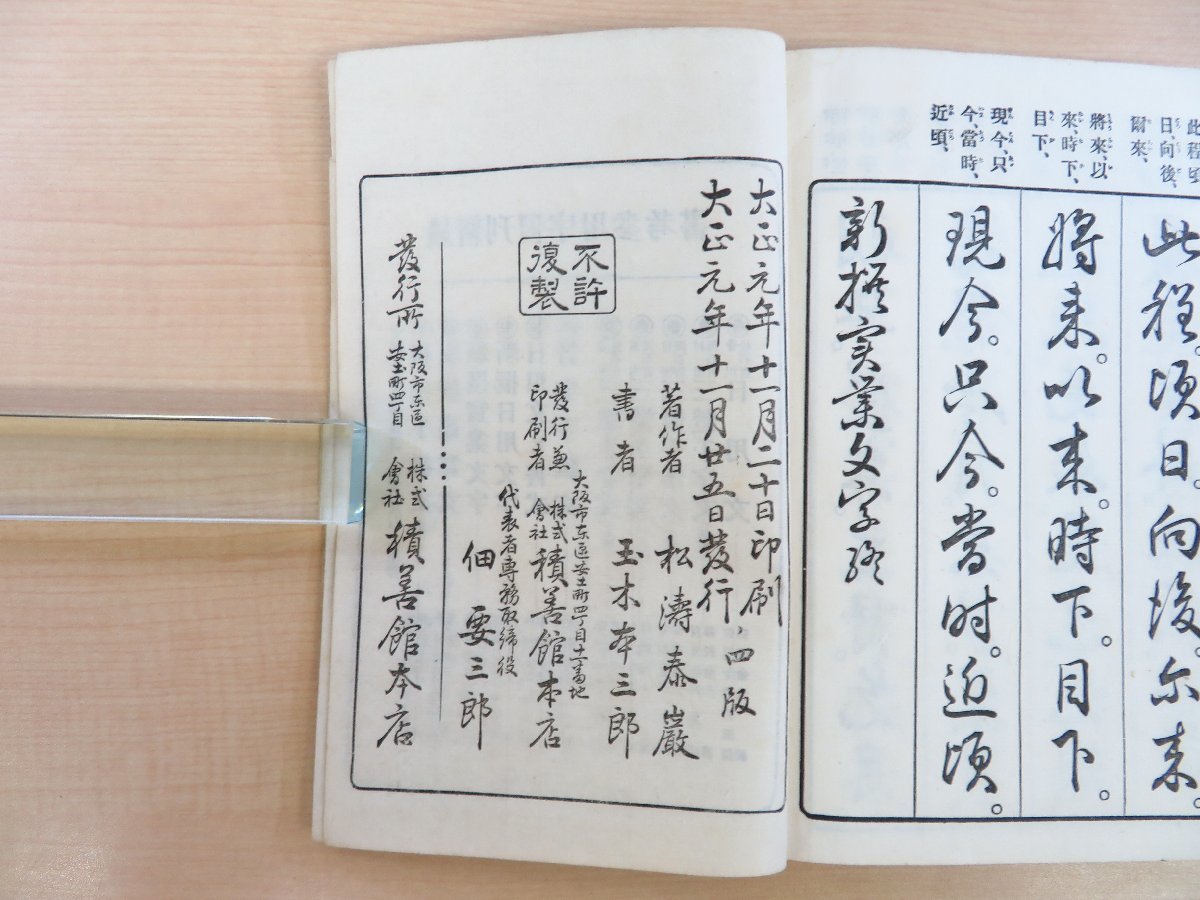 此程頃
日、向後、
爾來、
將來、以
來、時下、
目下、
現今、只
今、當時、
近頃、
此程。頃日。向後。尓来。
将来。以来。時下。目下。
現今。只今。当时。近頃。
新撰実業文字終
大正元年十一月二十日印刷
大正元年十一月廿五日發行、四版
不許
復製
著作者 松濤泰巖
書者 玉木本三郎
大阪市东區安土町四丁目十一番地
發行兼
印刷者 株式會社 積善館本店
代表者専務取締役
佃要三郎
發行所 大阪市东區安土町四丁目 株式會社 積善館本店